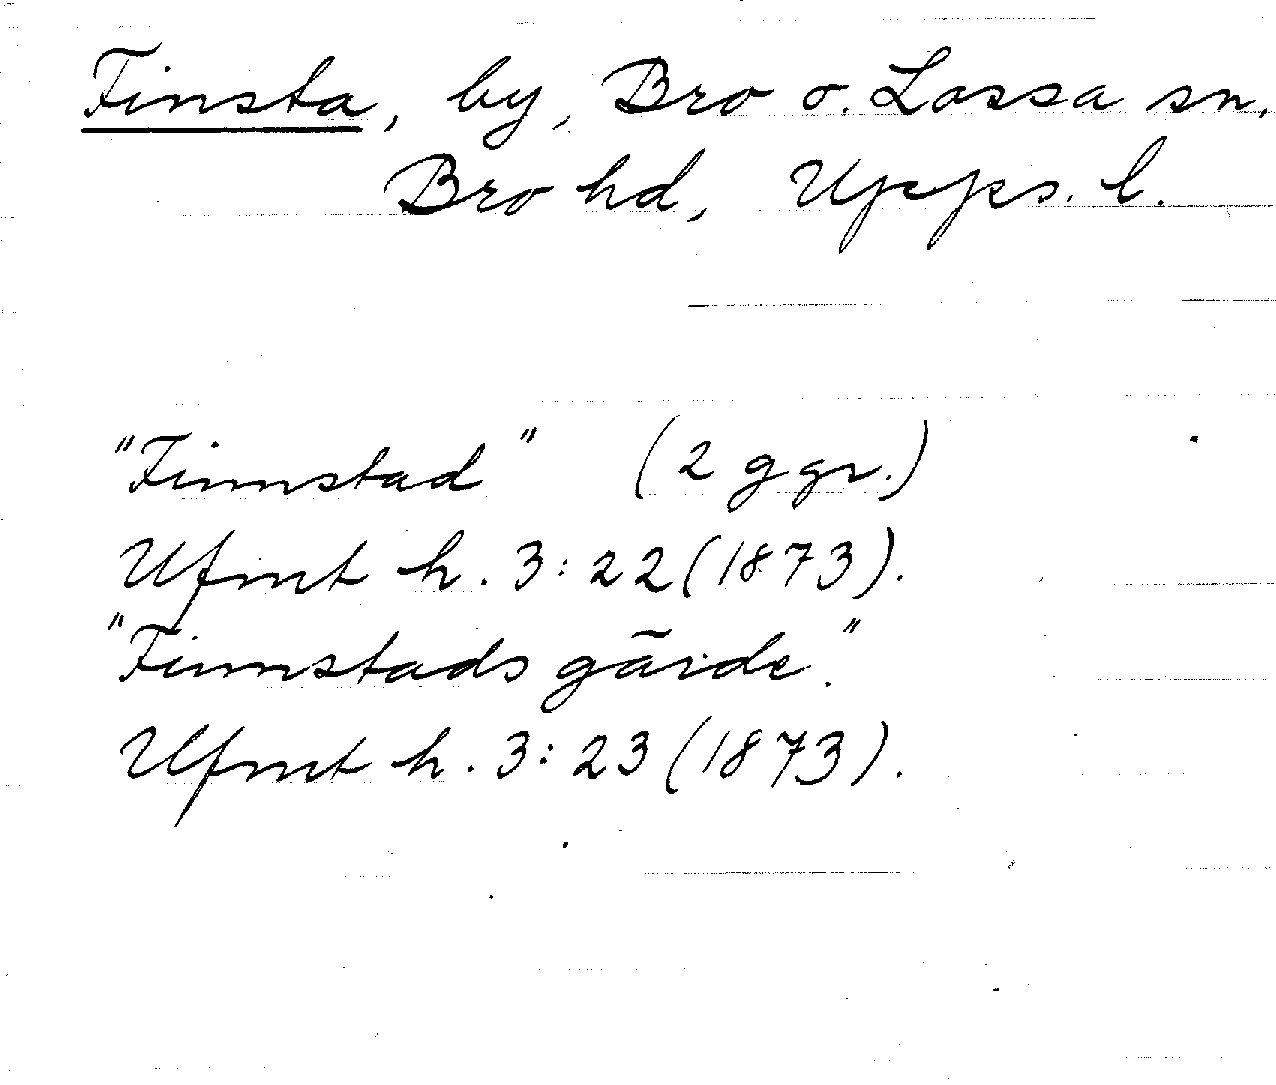 Finsta, by, Bro o. Lossa sn,
Bro hd, Upps. l.
"Finnstad" (2 ggr.)
Ufmt h. 3:22 (1873).
"Finnstads gärde."
Ufmt h. 3:23 (1873).